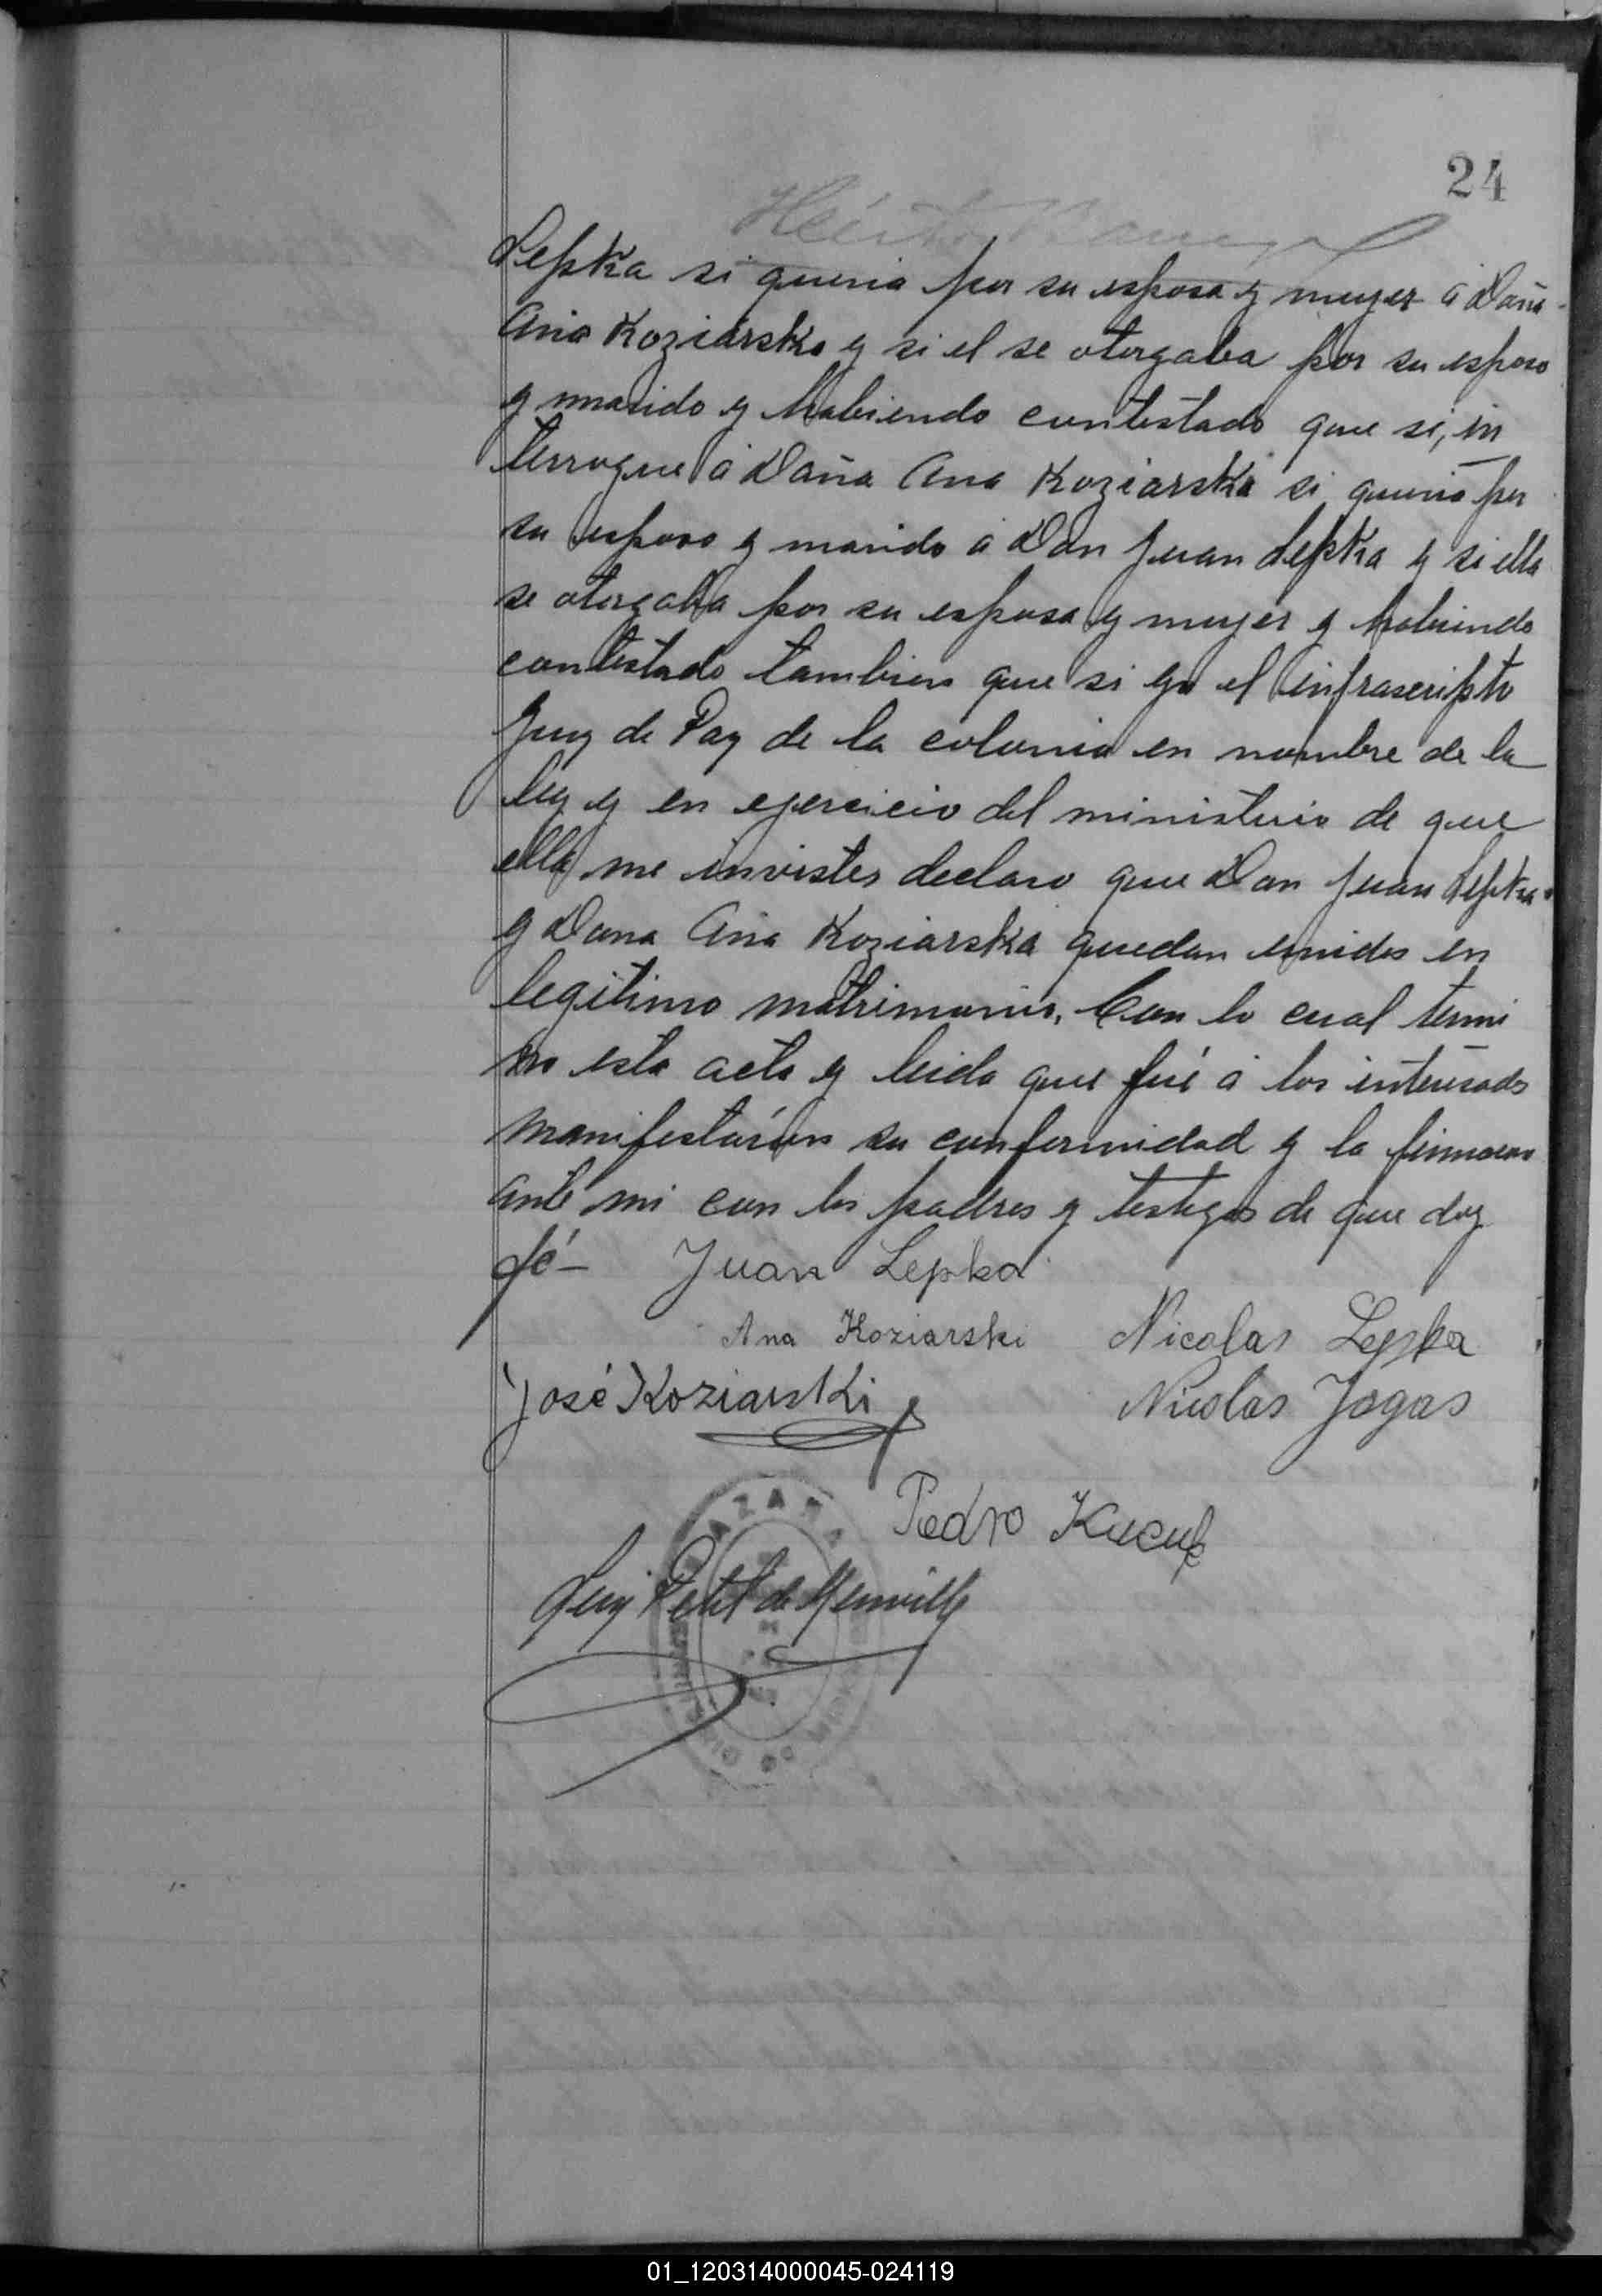 24
Lepka si queria por su esposa y mujer á Doña
Ana Koziarska y si el se otorgaba por su esposo
y marido y habiendo contestado que si, in
terrogue á Doña Ana Koziarska si queria por
su esposo y marido á Don Juan Lepka y si ella
se otorgaba por su esposa y mujer y habiendo
contestado tambien que si yo el infrascripto
Juez de Paz de la colonia en nombre de la
ley y en ejercicio del ministerio de que
ella me inviste declaro que Don Juan Lepka
y Dona Ana Koziarska quedan unidos en
legitimo matrimonio. Con lo cual termi
no esta acta y leida que fué á los interesados
manifestarón su conformidad y la firmaron
ante mi con los padres y testigos de que doy
fé - Juan Lepka
Ana Koziarski Nicolas Lepka
José Koziarski Nicolas Jogas
Pedro
Petit de
01_120314000045-024119